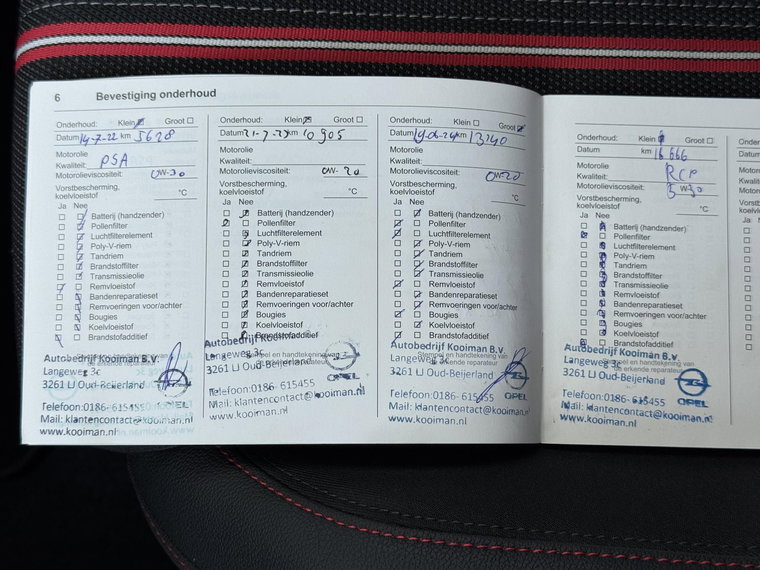 6 Bevestiging onderhoud
Onderhoud: Klein Groot
Datum 14-7-22 km 5628
Motorolie
Kwaliteit: PSA
Motorolieviscositeit: 0W-30
Vorstbescherming,
koelvloeistof °C
Ja Nee
Batterij (handzender)
Pollenfilter
Luchtfilterelement
Poly-V-riem
Tandriem
Brandstoffilter
Transmissieolie
Remvloeistof
Bandenreparatieset
Remvoeringen voor/achter
Bougies
Koelvloeistof
Brandstofadditief
Autobedrijf Kooiman B.V.
Langeweg 3c
3261 LJ Oud-Beijerland
OPEL
Telefoon:0186-615455
Mail: klantencontact@kooiman.nl
www.kooiman.nl
Onderhoud: Klein Groot
Datum 21-7-23 km 10905
Motorolie
Kwaliteit:
Motorolieviscositeit: 0W-20
Vorstbescherming,
koelvloeistof °C
Ja Nee
Batterij (handzender)
Pollenfilter
Luchtfilterelement
Poly-V-riem
Tandriem
Brandstoffilter
Transmissieolie
Remvloeistof
Bandenreparatieset
Remvoeringen voor/achter
Bougies
Koelvloeistof
Brandstofadditief
Autobedrijf Kooiman
Langeweg 3c
Stempel en handtekening van
3261 LJ Oud-Beijerland
OPEL
Telefoon:0186-615455
Mail: klantencontact@kooiman.nl
www.kooiman.nl
Onderhoud: Klein Groot
Datum 19-06-24 km 13240
Motorolie
Kwaliteit:
Motorolieviscositeit: 0W-20
Vorstbescherming,
koelvloeistof °C
Ja Nee
Batterij (handzender)
Pollenfilter
Luchtfilterelement
Poly-V-riem
Tandriem
Brandstoffilter
Transmissieolie
Remvloeistof
Bandenreparatieset
Remvoeringen voor/achter
Bougies
Koelvloeistof
Brandstofadditief
Autobedrijf Kooiman B.V.
Stempel en handtekening van
Langeweg 3c
de erkende reparateur
3261 LJ Oud-Beijerland
OPEL
Telefoon:0186-615455
Mail: klantencontact@kooiman.nl
www.kooiman.nl
Onderhoud: Klein Groot
Datum km 16666
Motorolie
Kwaliteit:
Motorolieviscositeit: 5W30
Vorstbescherming,
koelvloeistof °C
Ja Nee
Batterij (handzender)
Pollenfilter
Luchtfilterelement
Poly-V-riem
Tandriem
Brandstoffilter
Transmissieolie
Remvloeistof
Bandenreparatieset
Remvoeringen voor/achter
Bougies
Koelvloeistof
Brandstofadditief
Autobedrijf Kooiman B.V.
Stempel en handtekening van
Langeweg 3c
de erkende reparateur
3261 LJ Oud-Beijerland
OPEL
Telefoon:0186-615455
Mail: klantencontact@kooiman.nl
www.kooiman.nl